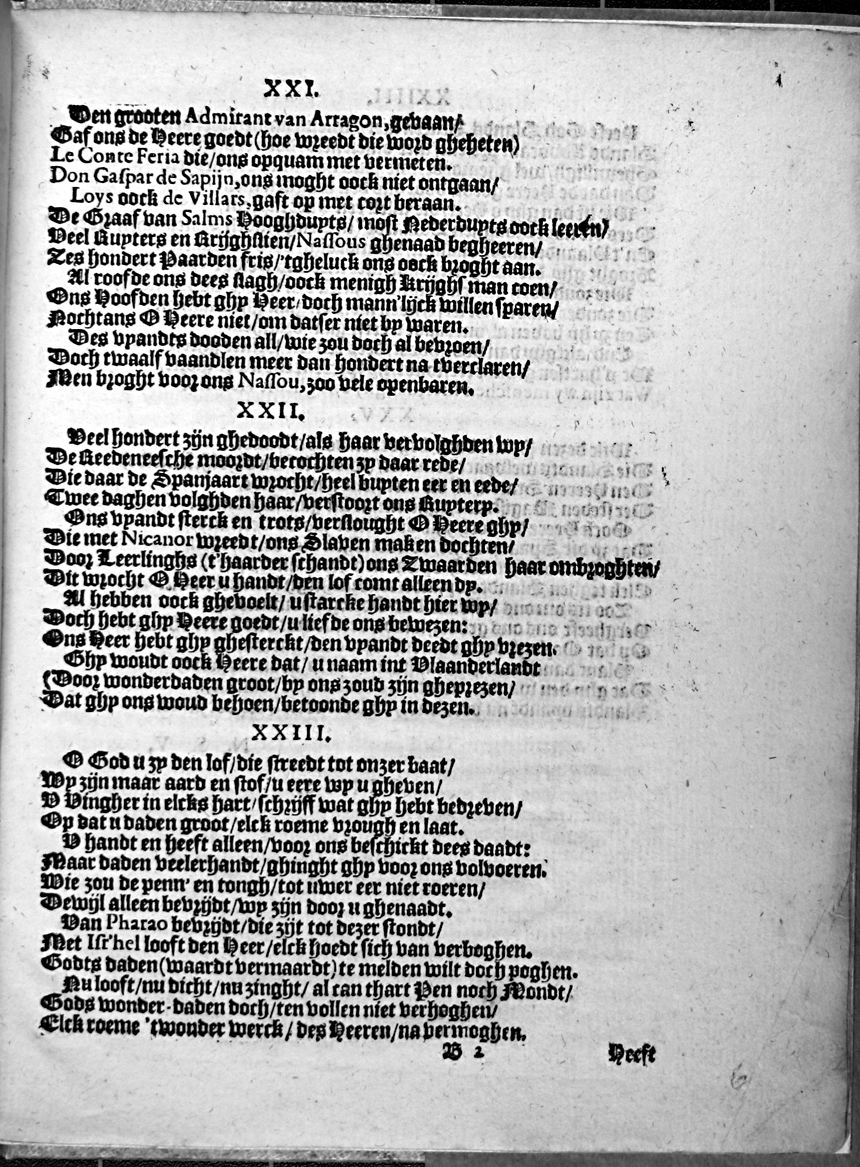 XXI.
Den grooten Admirant van Arragon, gevaan/
Gaf ons de Heere goedt (hoe wreedt die word gheheten)
Le Conte Feria die/ons opquam met vermeten.
Don Gaspar de Sapijn, ons moght oock niet ontgaan/
Loys oock de Villars, gaft op met cort beraan.
De Graaf van Salms Hooghduyts/ most Nederduyts oock leeren/
Veel Ruyters en Krijghslien/Nassous ghenaad begheeren/
Zes hondert Paarden fris/'tgheluck ons oock broght aan.
Al roofde ons dees slagh/oock menigh Krijghs man coen/
Ons Hoofden hebt ghy Heer/doch mann'lijck willen sparen/
Nochtans O Heere niet/om datser niet by waren.
Des vyandts dooden all/wie zou doch al bevroen/
Doch twaalf vaandlen meer dan hondert na tverclaren/
Men broght voor ons Nassou, zoo vele openbaren.
XXII.
Veel hondert zijn ghedoodt/als haar vervolghden wy/
De Reedeneesche moordt/becochten zy daar rede/
Die daar de Spanjaart wrocht/heel buyten eer en eede/
Twee daghen volghden haar/verstoort ons Ruytery.
Ons vyandt sterck en trots/verslought O Heere ghy/
Die met Nicanor wreedt/ons Slaven maken dochten/
Door Leerlinghs (t'haarder schandt) ons Zwaarden haar ombroghten/
Dit wrocht O Heer u handt/den lof comt alleen dy.
Al hebben oock ghevoelt/ u starcke handt hier wy/
Doch hebt ghy Heere goedt/u liefde ons bewezen:
Ons Heer hebt ghy ghesterckt/den vyandt deedt ghy vrezen.
Ghy woudt oock Heere dat/ u naam int Vlaanderlandt
(Door wonderdaden groot/by ons zoud zijn gheprezen/
Dat ghy ons woud behoen/betoonde ghy in dezen.
XXIII.
O God u zy den lof/die streedt tot onzer baat/
Wy zijn maar aard en stof/u eere wy u gheven/
V Vingher in elcks hart/schrijff wat ghy hebt bedreven/
Op dat u daden groot/elck roeme vrough en laat.
V handt en heeft alleen/voor ons beschickt dees daadt:
Maar daden veelerhandt/ghinght ghy voor ons volvoeren.
Wie zou de penn' en tongh/tot uwer eer niet roeren/
Dewijl alleen bevrijdt/wy zijn door u ghenaadt.
Van Pharao bevrijdt/die zijt tot dezer stondt/
Met Isr'hel looft den Heer/elck hoedt sich van verboghen.
Godts daden (waardt vermaardt) te melden wilt doch poghen.
Nu looft/nu dicht/nu zinght/ al can thart Pen noch Mondt/
Gods wonder-daden doch/ten vollen niet verhoghen/
Elck roeme 'twonder werck/ des Heeren/na vermoghen.
B 2 Heeft
6